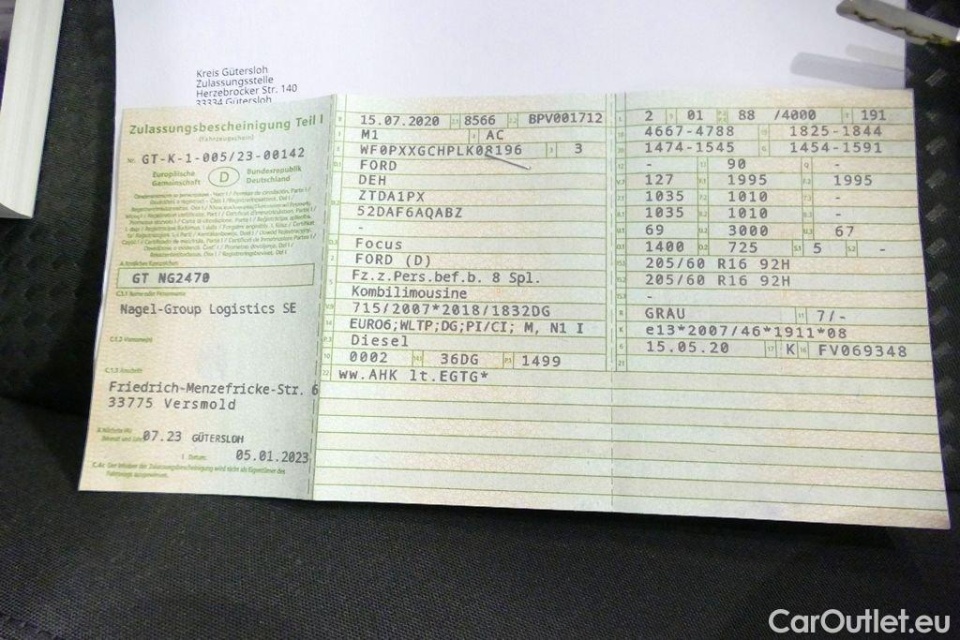 Kreis Gütersloh
Zulassungsstelle
Herzebrocker Str. 140
33334 Gütersloh
Zulassungsbescheinigung Teil I
(Fahrzeugschein)
Nr. GT-K-1-005/23-00142
Europäische Gemeinschaft D Bundesrepublik Deutschland
GT NG2470
Nagel-Group Logistics SE
C.1.2 Vorname(n)
C.1.3 Anschrift
Friedrich-Menzefricke-Str. 6
33775 Versmold
07.23 GÜTERSLOH
Datum: 05.01.2023
15.07.2020 8566 BPV001712
M1 AC
WF0PXXGCHPLK08196 3
FORD
DEH
ZTDA1PX
52DAF6AQABZ
-
Focus
FORD (D)
Fz.z.Pers.bef.b. 8 Spl.
Kombilimousine
715/2007*2018/1832DG
EURO6;WLTP;DG;PI/CI; M, N1 I
Diesel
0002 36DG 1499
ww.AHK lt.EGTG*
2 01 88 /4000 191
4667-4788 1825-1844
1474-1545 1454-1591
- 90 -
127 1995 1995
1035 1010 -
1035 1010 -
69 3000 67
1400 725 5 -
205/60 R16 92H
205/60 R16 92H
-
GRAU 7/-
e13*2007/46*1911*08
15.05.20 K FV069348
CarOutlet.eu